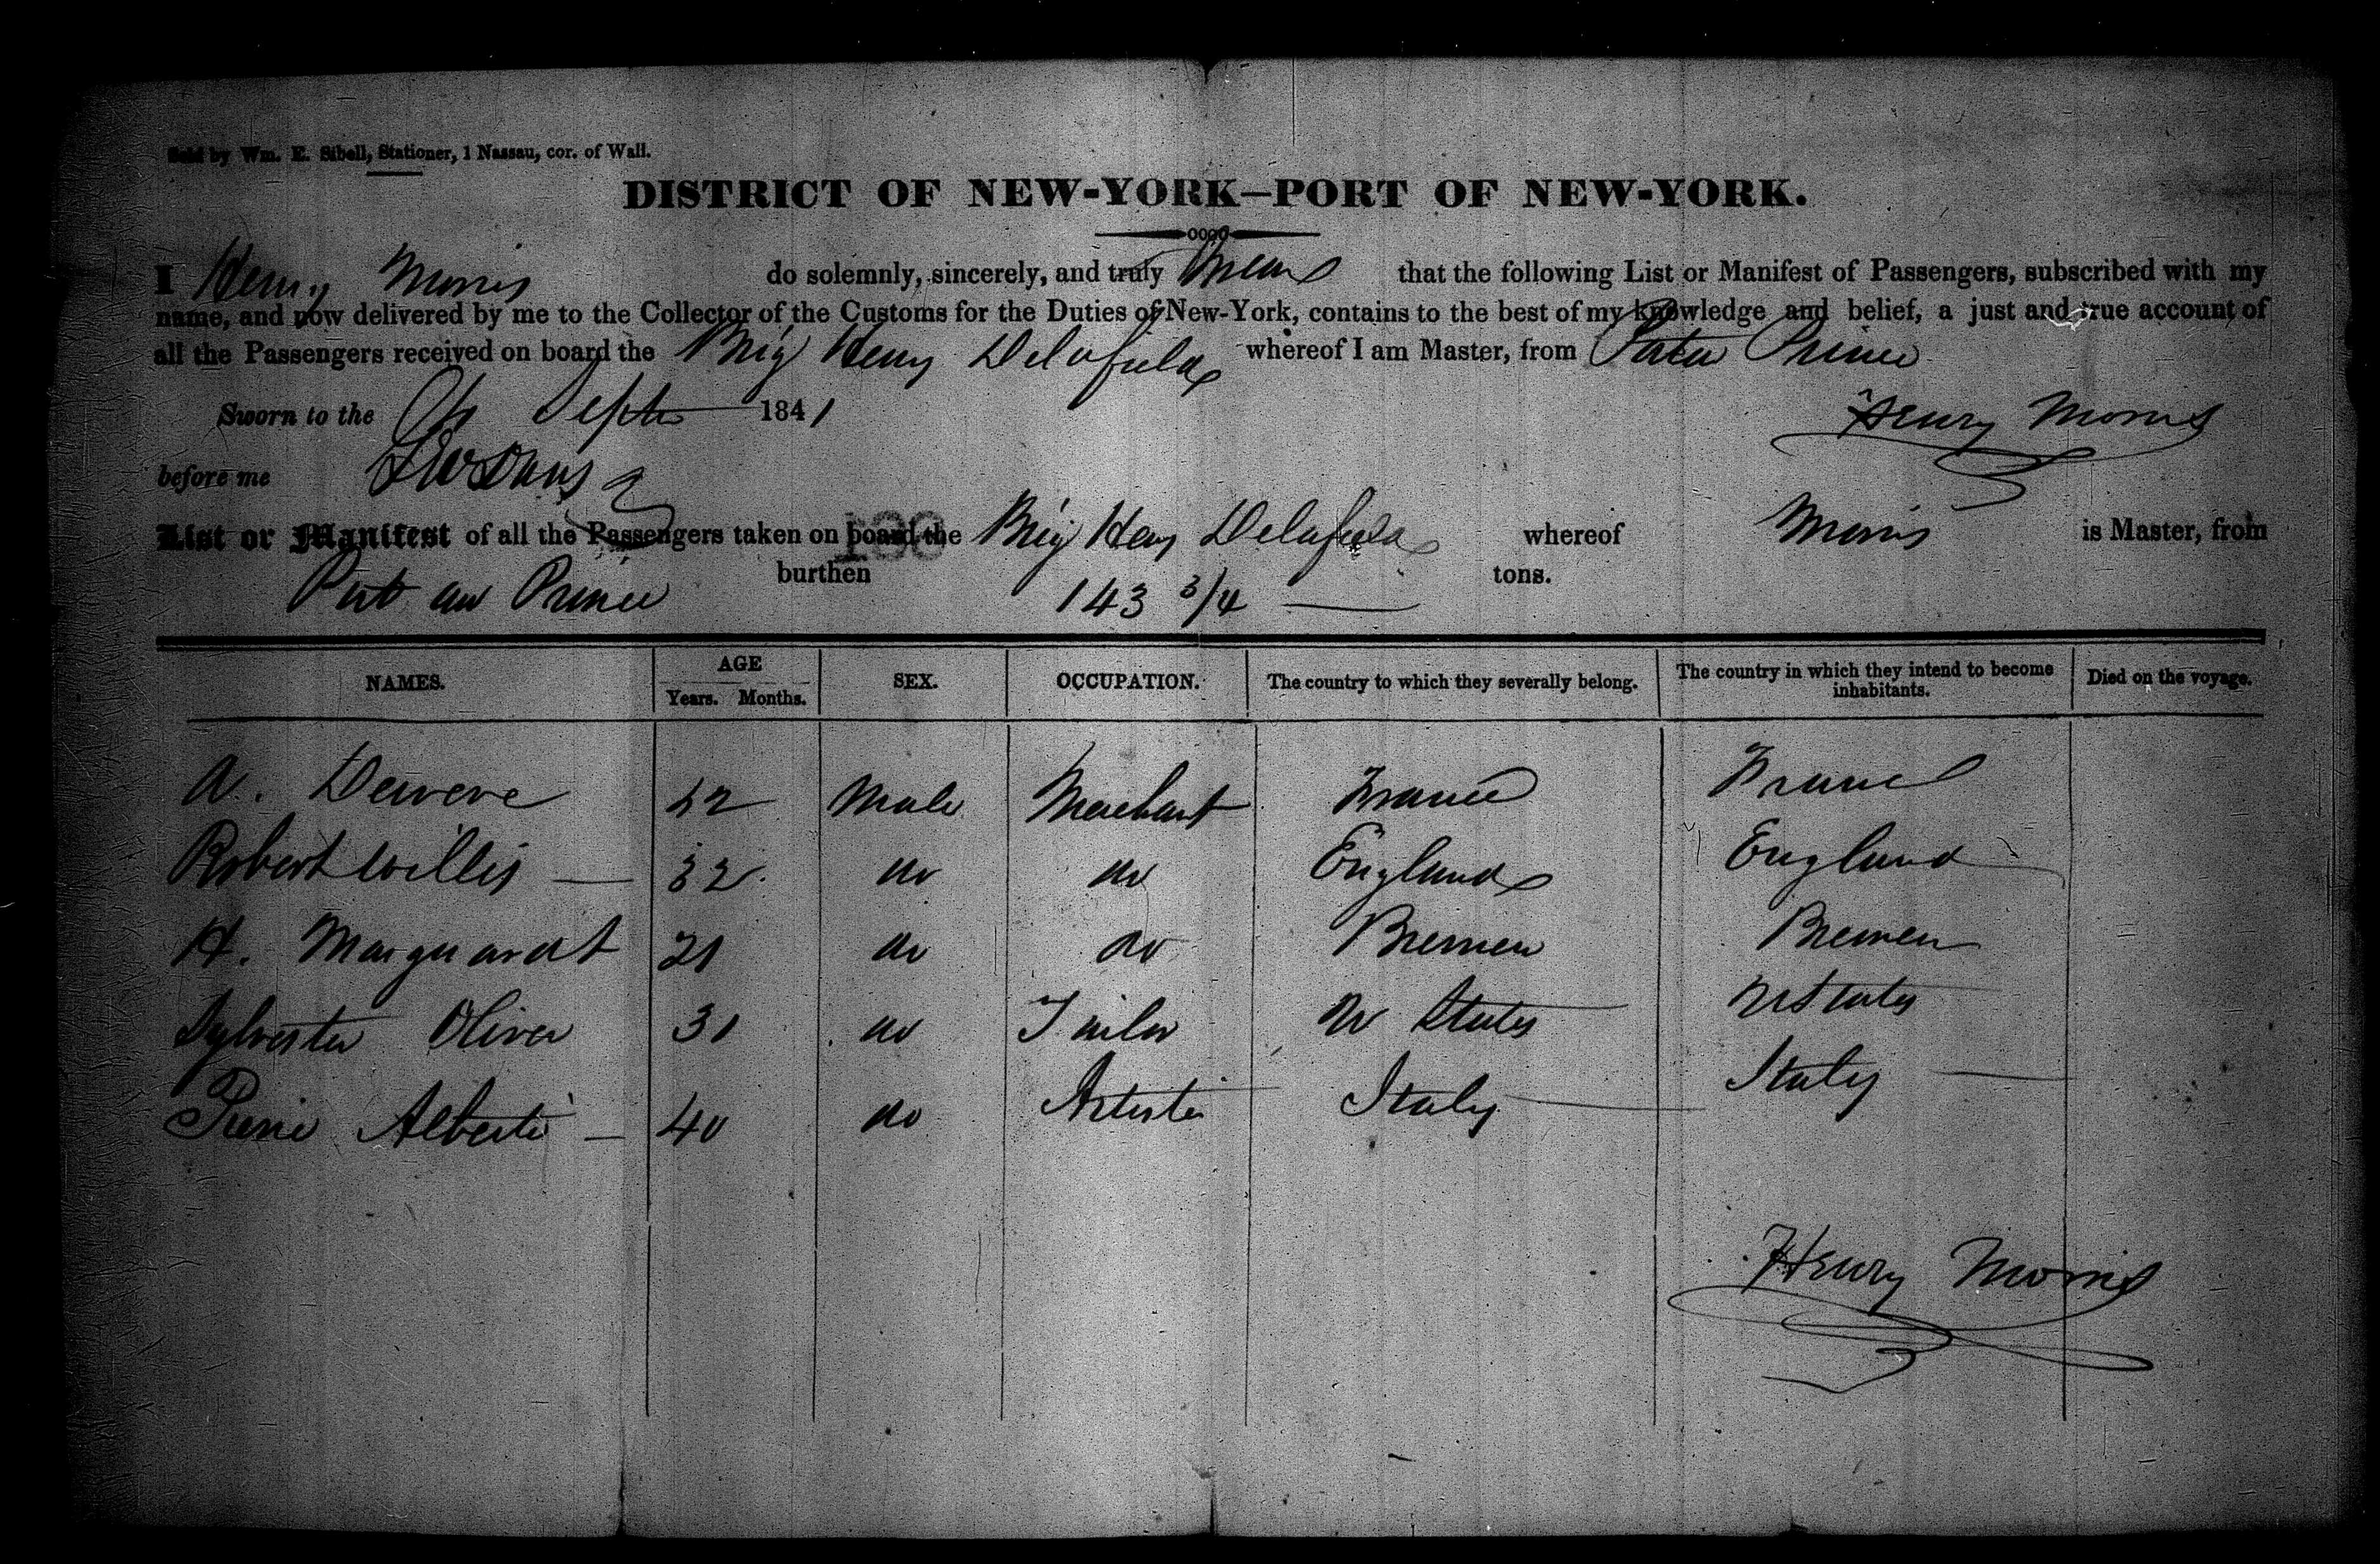 Sold by Wm. E. Sibell, Stationer, 1 Nassau, cor. of Wall.
DISTRICT OF NEW-YORK—PORT OF NEW-YORK.
I Henry Morris do solemnly, sincerely, and truly swear that the following List or Manifest of Passengers, subscribed with my
name, and now delivered by me to the Collector of the Customs for the Duties of New-York, contains to the best of my knowledge and belief, a just and true account of
all the Passengers received on board the Brig Henry Delafield whereof I am Master, from Prince
Sworn to the Sept 1841 Henry Morris
before me
List or Manifest of all the Passengers taken on board the Brig Heny Delafield whereof Morris is Master, from
Port au Prince burthen 143 3/4 tons.
NAMES. AGE Years. Months. SEX. OCCUPATION. The country to which they severally belong. The country in which they intend to become inhabitants. Died on the voyage.
A. Male Merchant France France
Robert Willis 32 do do England England
H. Marquardt 21 do do Bremen Bremen
Sylvester Oliver 31 do Tailor U States U States
Alberti 40 do Artist Italy Italy
Henry Morris